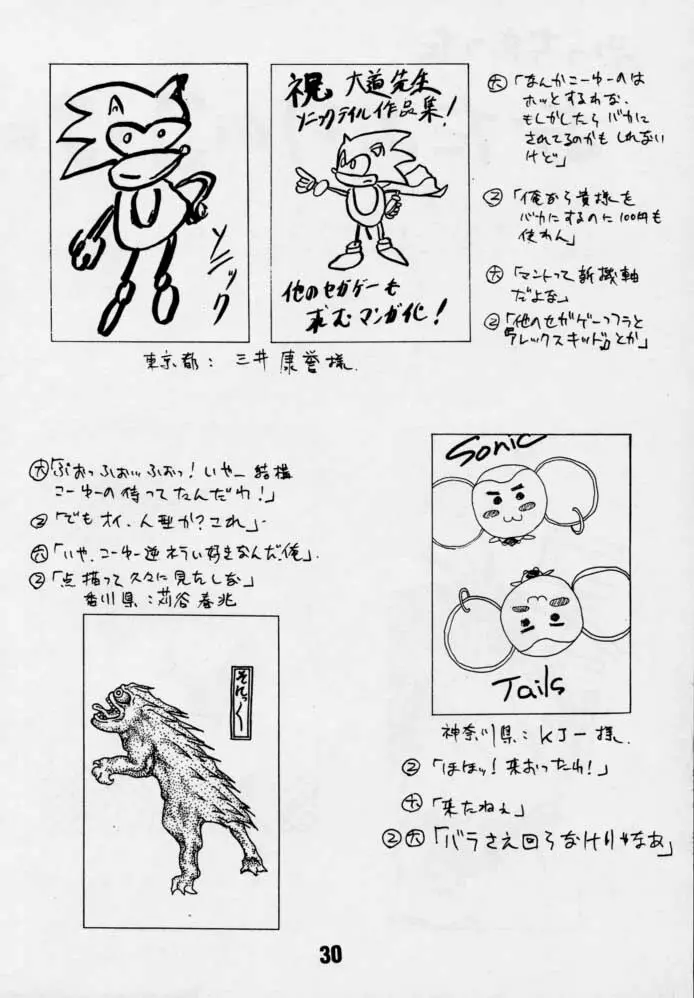 ソニック
祝 大道先生
ソニックテイル作品集!
他のセガゲーも
求むマンガ化!
東京都: 三井康誉様.
大「なんかこーゆーのは
ホッとするわな.
もしかしたらバカに
されてるのかもしれない
けど」
2「俺が貴様を
バカにするのに100円も
使わん」
大「マントって新機軸
だよな」
2「他のセガゲーっつうと
『アレックスキッド』とか」
大「ぶおっふおっふおっ!いやー結構
こーゆーの待ってたんだわ!」
2「でもオイ、人型か?これ」
大「いや、こーゆー逆ネライ好きなんだ俺」.
2「点描って久々に見たしな」
香川県:苅谷春兆
そにっく
Sonic
Tails
神奈川県:KJー様.
2「ほほッ!来おったわ!」
大「来たねぇ」
2大「バラさえ回らなけりゃなあ」
30